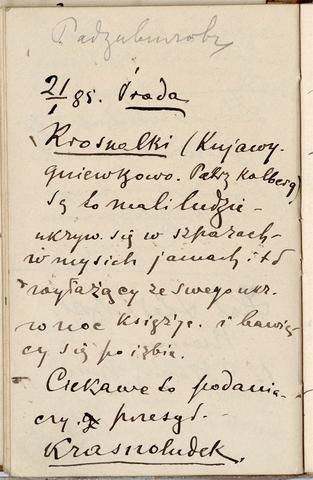 21/1 85. Środa
Krosnalki (Kujawy.
gniewkowo. Patrz Kolberg)
Są to mali ludzie –
ukryw. się w szparach –
w mysich jamach i t d
wyłażący ze swego ukr.
w noc księżyc. i bawią-
cy się po izbie.
Ciekawe to podania –
czy przesyd. –
Krasnoludek.